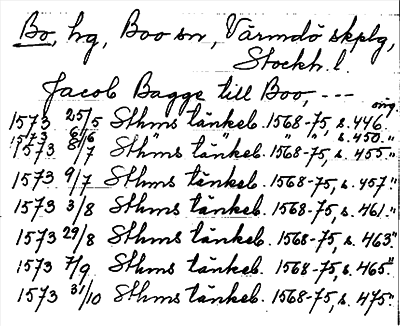 Bo, hg, Boo sn, Värmdö skplg,
Stockh. l.
Jacob Bagge till Boo, ---
orig.
1573 25/5 Sthms tänkeb. 1568-75, s. 446.
1573 6/6 Sth " " " s. 450. "
1573 8/7 Sthms tänkeb. 1568-75, s. 455. "
1573 9/7 Sthms tänkeb. 1568-75, s. 457. "
1573 3/8 Sthms tänkeb. 1568-75, s. 461. "
1573 29/8 Sthms tänkeb. 1568-75, s. 463. "
1573 7/9 Sthms tänkeb. 1568-75, s. 465. "
1573 31/10 Sthms tänkeb. 1568-75, s. 475. "